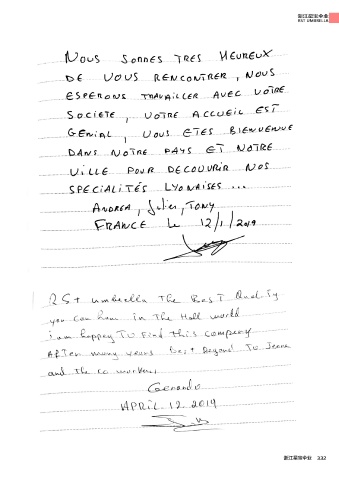 浙江星宝伞业
RST UMBRELLA
NOUS SOMMES TRES HEUREUX
DE VOUS RENCONTRER, NOUS
ESPERONS TRAVAILLER AVEC VOTRE
SOCIETE, VOTRE ACCUEIL EST
GENIAL, VOUS ETES BIENVENUE
DANS NOTRE PAYS ET NOTRE
VILLE POUR DECOUVRIR NOS
SPECIALITÉS LYONAISES ...
ANDREA, Julien, TONY
FRANCE Le 12/1/2019
RSt umbrella The BesT QualiTy
you can have in The Hall world
i am happy To Find this company
AFTer many years Best Regard To
and the co workers
Gerardo
APRIL 12 2019
浙江星宝伞业 332